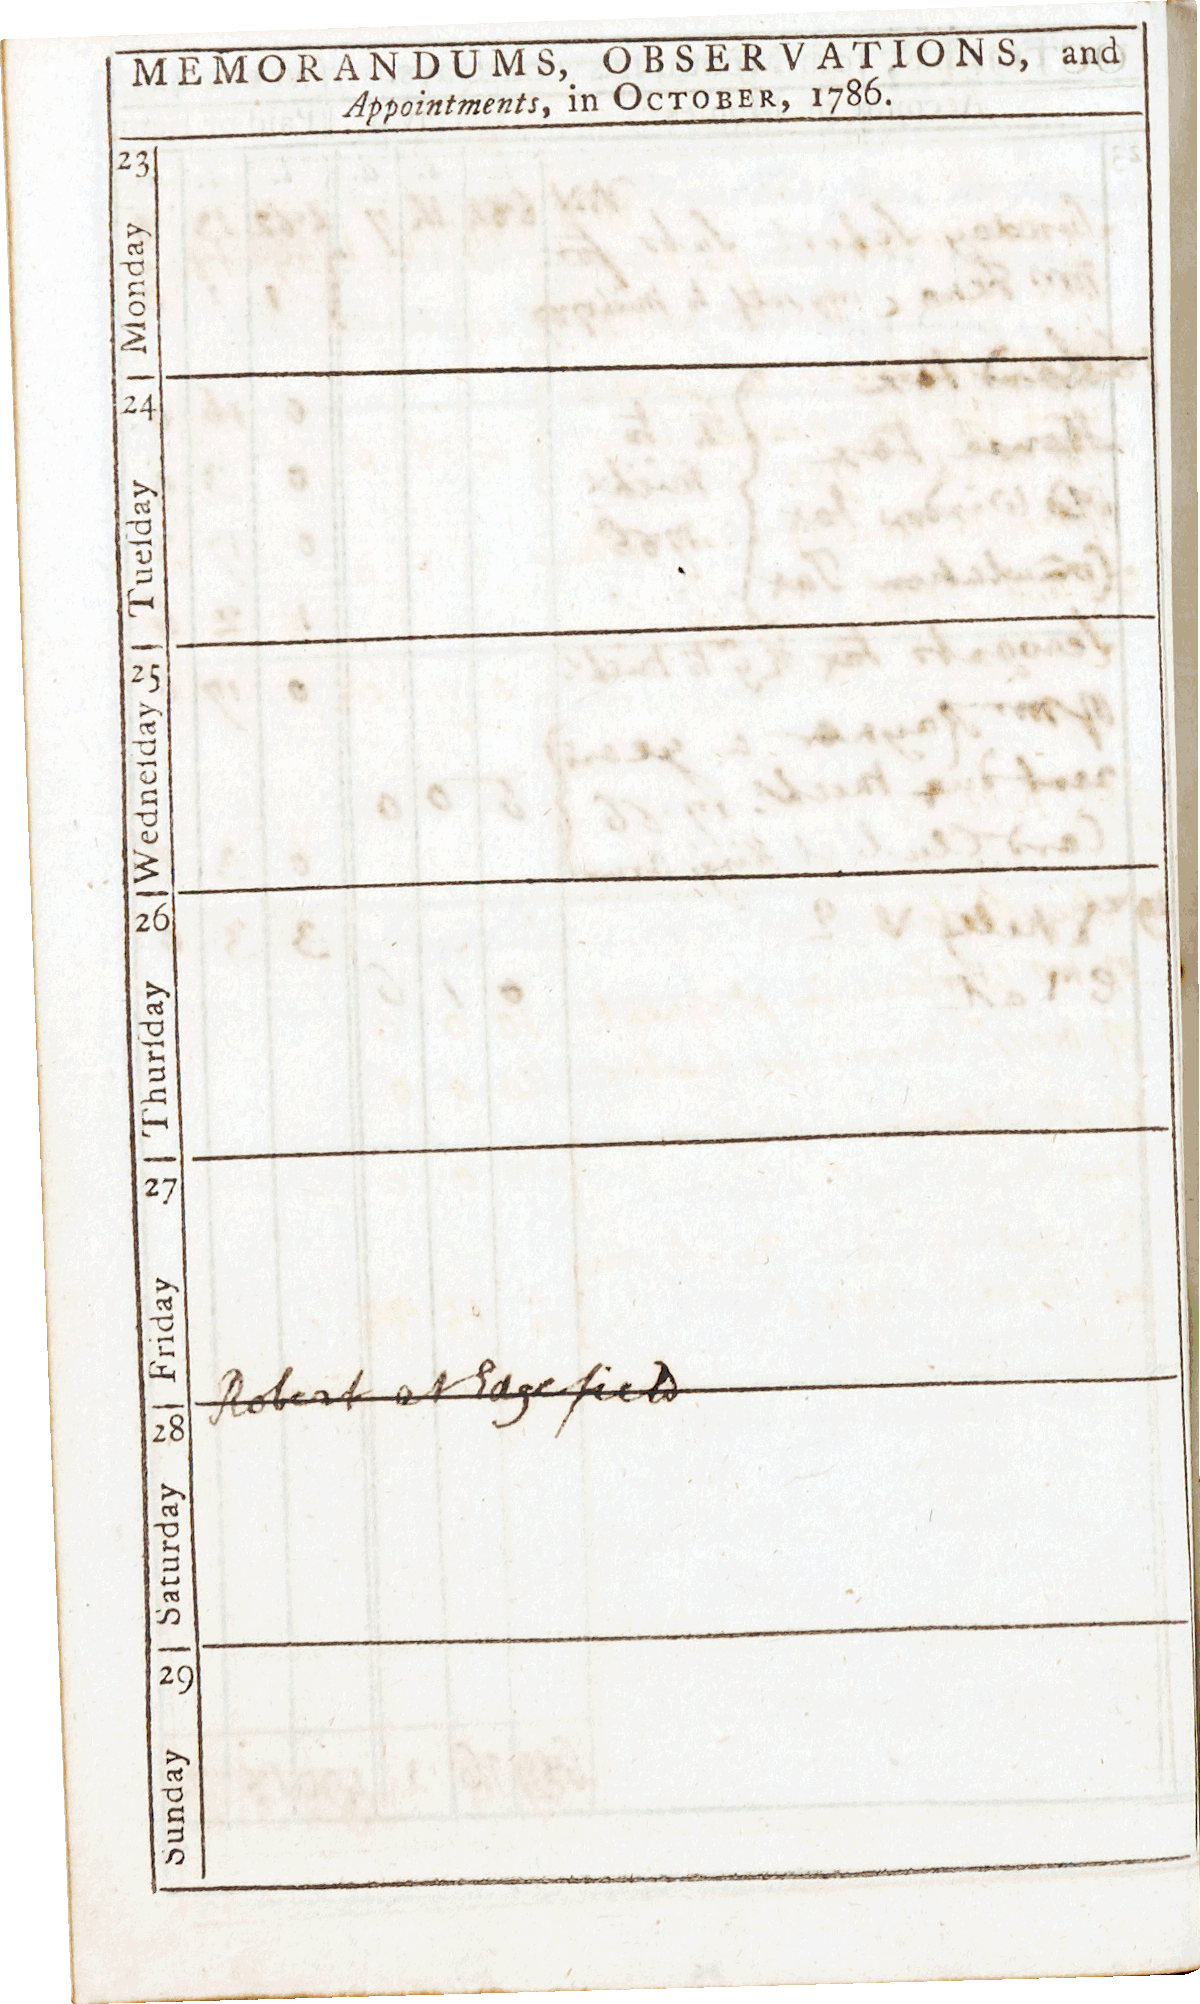 MEMORANDUMS, OBSERVATIONS, and
Appointments, in OCTOBER, 1786.
23
Monday
24
Tueſday
25
Wedneſday
26
Thurſday
27
Friday
Robert at Edgefield
28
Saturday
29
Sunday